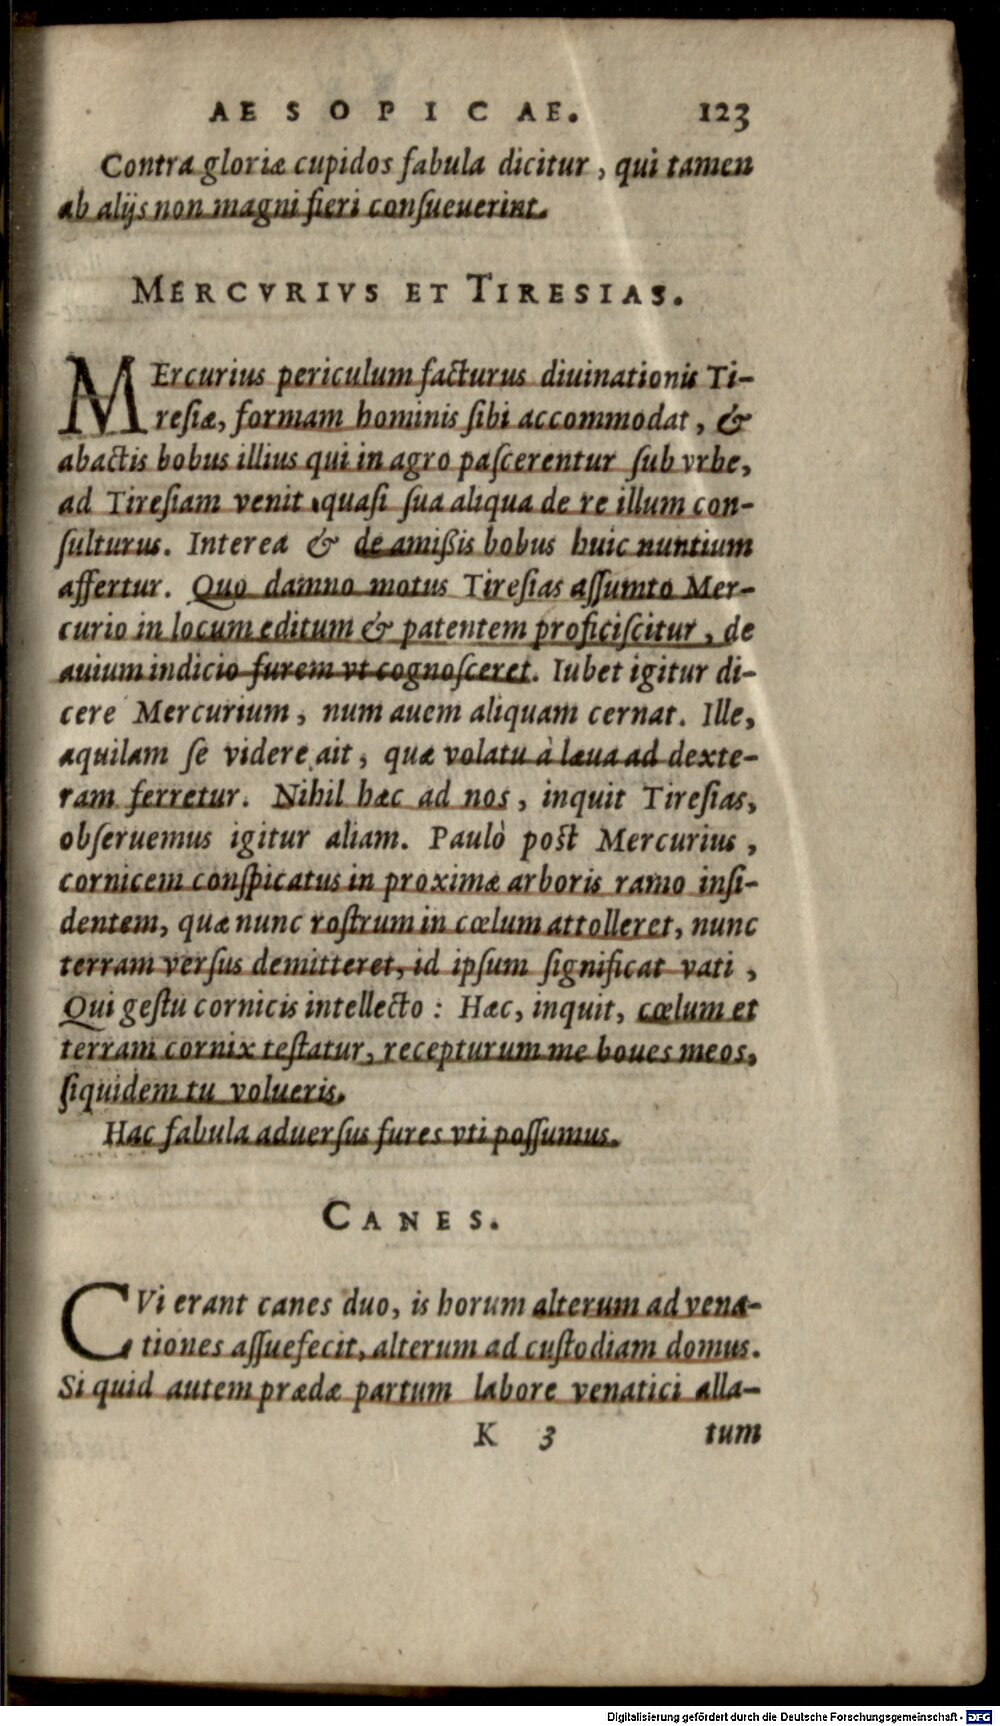 AESOPICAE. 123
Contra gloriæ cupidos fabula dicitur, qui tamen
ab alijs non magni fieri conſueuerint.
MERCVRIVS ET TIRESIAS.
MErcurius periculum facturus diuinationis Ti-
reſiæ, formam hominis ſibi accommodat, &
abactis bobus illius qui in agro paſcerentur ſub vrbe,
ad Tireſiam venit quaſi ſua aliqua de re illum con-
ſulturus. Interea & de amißis bobus huic nuntium
affertur. Quo damno motus Tireſias aſſumto Mer-
curio in locum editum & patentem proficiſcitur, de
auium indicio furem vt cognoſceret. Iubet igitur di-
cere Mercurium, num auem aliquam cernat. Ille,
aquilam ſe videre ait, quæ volatu à læua ad dexte-
ram ferretur. Nihil hæc ad nos, inquit Tireſias,
obſeruemus igitur aliam. Paulò poſt Mercurius,
cornicem conſpicatus in proximæ arboris ramo inſi-
dentem, quæ nunc roſtrum in cœlum attolleret, nunc
terram verſus demitteret, id ipſum ſignificat vati,
Qui geſtu cornicis intellecto: Hæc, inquit, cœlum et
terram cornix teſtatur, recepturum me boues meos,
ſiquidem tu volueris.
Hac fabula aduerſus fures vti poſſumus.
CANES.
CVi erant canes duo, is horum alterum ad vena-
tiones aſſuefecit, alterum ad cuſtodiam domus.
Si quid autem prædæ partum labore venatici alla-
K 3 tum
Digitalisierung gefördert durch die Deutsche Forschungsgemeinschaft - DFG